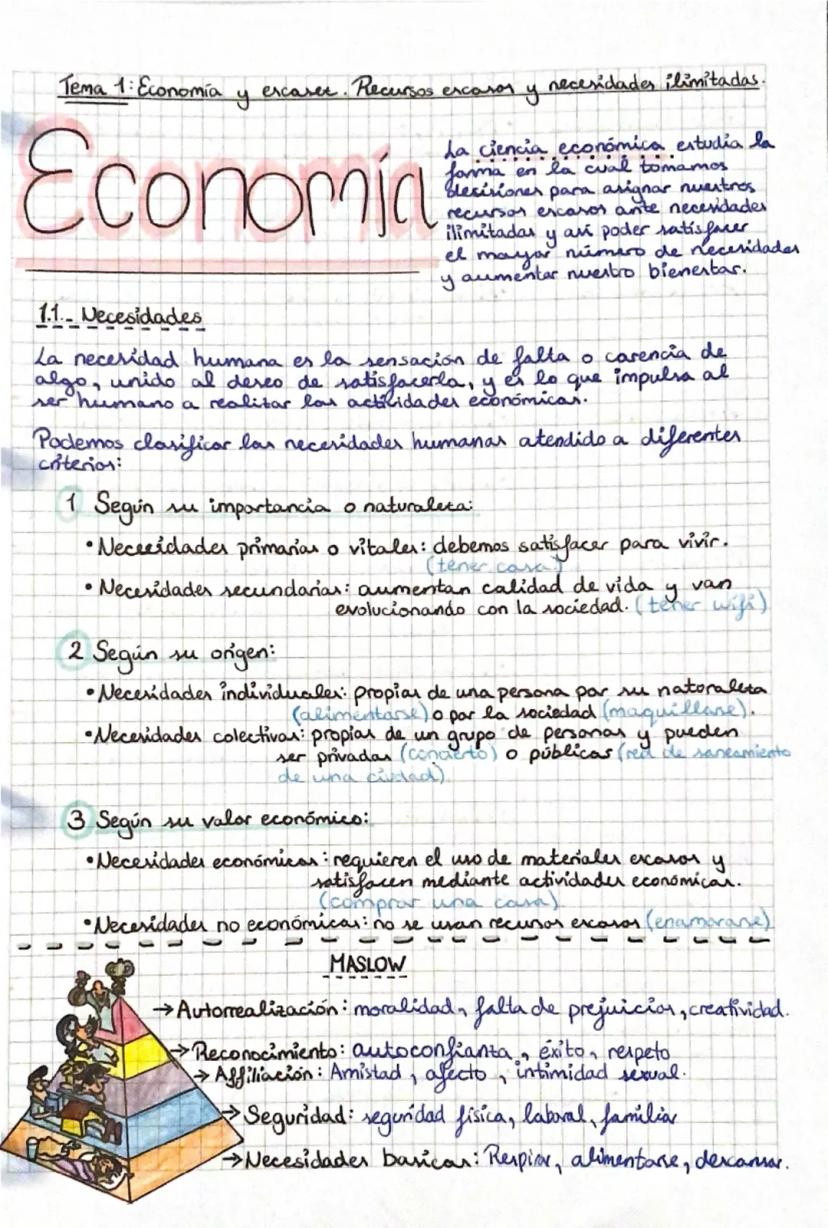 Tema 1: Economía y escasez. Recursos escasos y necesidades ilimitadas.
Economía
La ciencia económica estudia la
forma en la cual tomamos
decisiones para asignar nuestros
recursos escasos ante necesidades
ilimitadas y así poder satisfacer
el mayor número de necesidades
y aumentar nuestro bienestar.
1.1.- Necesidades
La necesidad humana es la sensación de falta o carencia de
algo, unido al deseo de satisfacerla, y es lo que impulsa al
ser humano a realizar las actividades económicas.
Podemos clasificar las necesidades humanas atendido a diferentes
criterios:
1 Según su importancia o naturaleza:
• Necesidades primarias o vitales: debemos satisfacer para vivir.
(tener casa)
• Necesidades secundarias: aumentan calidad de vida y van
evolucionando con la sociedad. (tener wifi)
2 Según su origen:
• Necesidades individuales: propias de una persona por su natoraleza
(alimentarse) o por la sociedad (maquillarse).
• Necesidades colectivas: propias de un grupo de personas y pueden
ser privadas (concierto) o públicas (red de saneamiento
de una ciudad)
3 Según su valor económico:
• Necesidades económicas: requieren el uso de materiales escasos y
satisfacen mediante actividades económicas.
(comprar una casa)
• Necesidades no económicas: no se usan recursos escasos (enamorarse)
MASLOW
→ Autorrealización: moralidad, falta de prejuicios, creatividad.
→ Reconocimiento: autoconfianza, éxito, respeto
→ Affiliación: Amistad, afecto, intimidad sexual.
→ Seguridad: seguridad física, laboral, familiar
→ Necesidades basicas: Respirar, alimentarse, descansar.